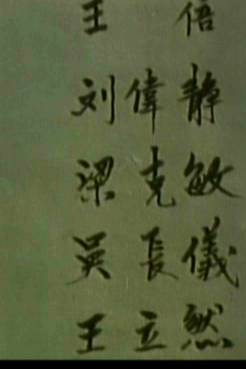 王
刘偉静
梁克敏
吳長儀
王立然